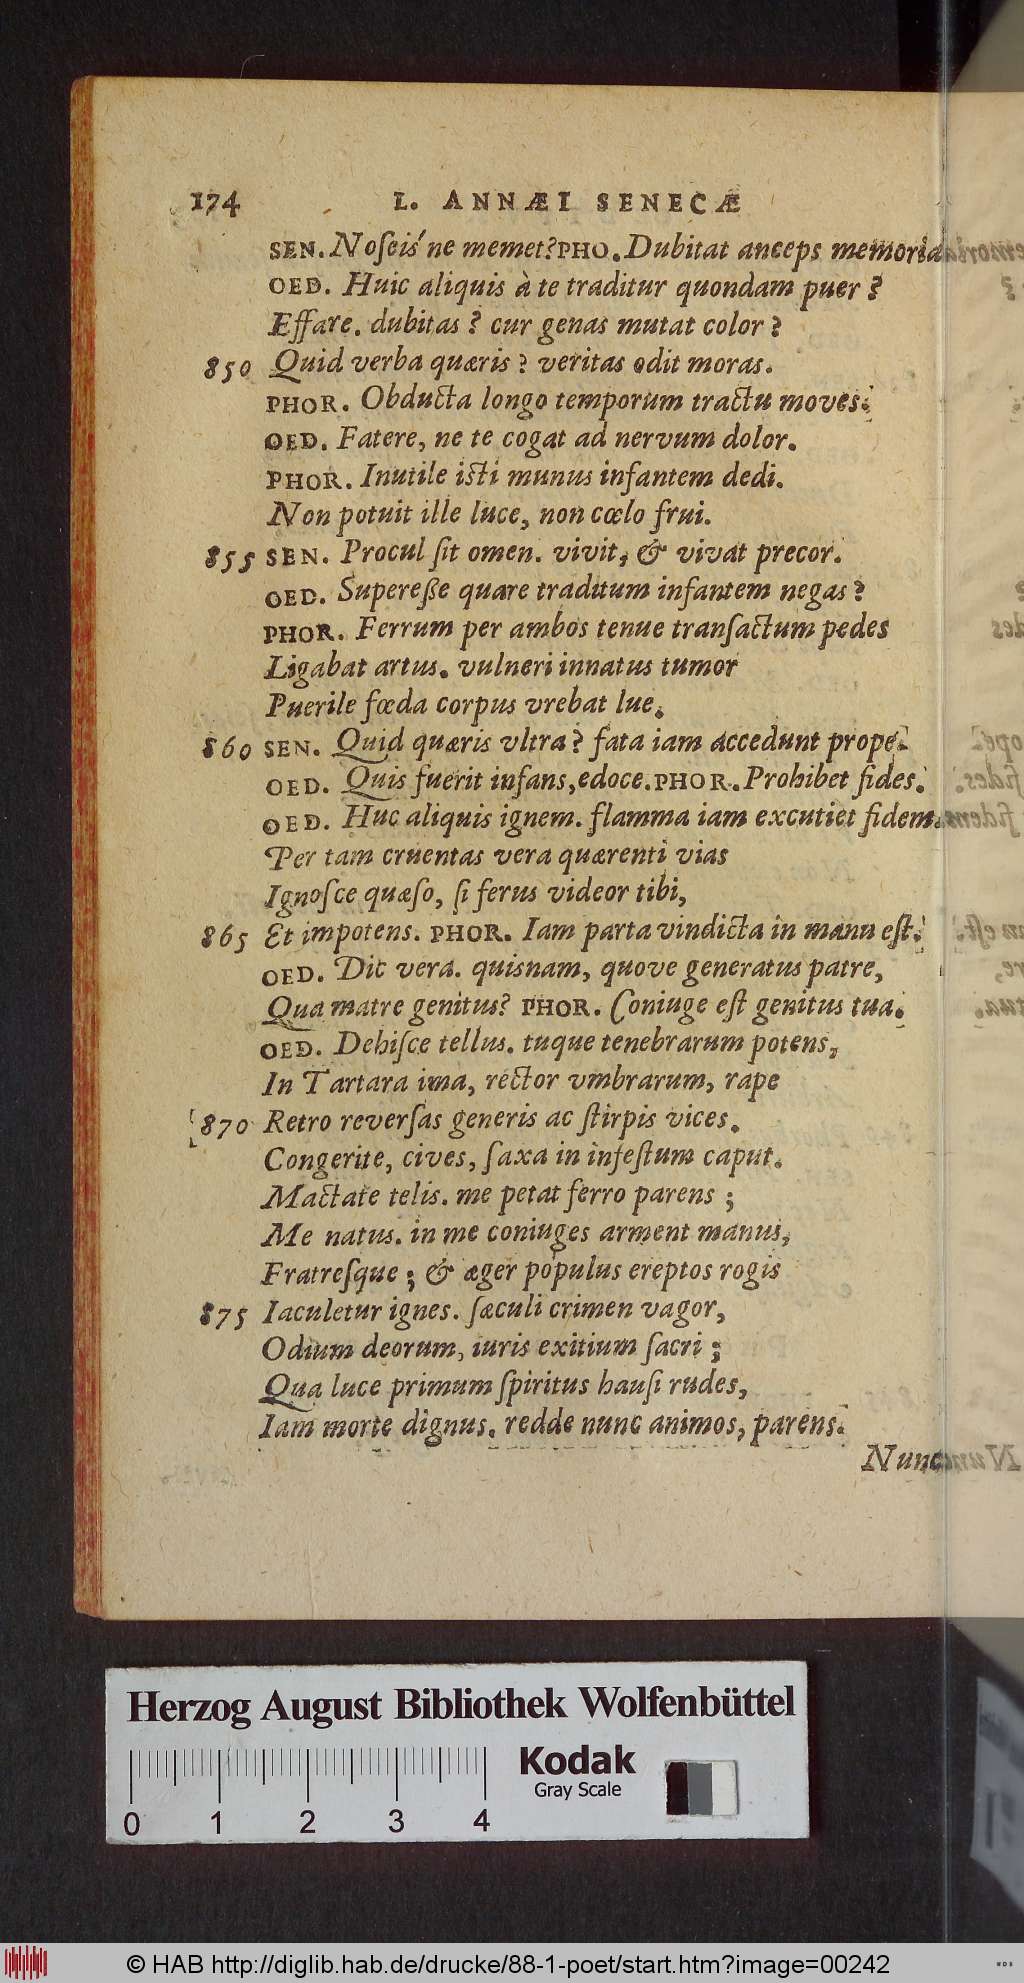 174 L. ANNÆI SENECÆ
SEN. Noſeis' ne memet? PHO. Dubitat anceps memoria
OED. Huic aliquis à te traditur quondam puer?
Effare. dubitas? cur genas mutat color?
850 Quid verba quæris? veritas odit moras.
PHOR. Obducta longo temporum tractu moves.
OED. Fatere, ne te cogat ad nervum dolor.
PHOR. Inutile isti munus infantem dedi.
Non potuit ille luce, non cœlo frui.
855 SEN. Procul ſit omen. vivit, & vivat precor.
OED. Supereße quare traditum infantem negas?
PHOR. Ferrum per ambos tenue tranſactum pedes
Ligabat artus. vulneri innatus tumor
Puerile fœda corpus vrebat lue.
860 SEN. Quid quæris vltra? fata iam accedunt prope.
OED. Quis fuerit infans, edoce. PHOR. Prohibet fides.
OED. Huc aliquis ignem. flamma iam excutiet fidem.
Per tam cruentas vera quærenti vias
Ignoſce quæſo, ſi ferus videor tibi,
865 Et impotens. PHOR. Iam parta vindicta in manu eſt.
OED. Dic vera. quisnam, quove generatus patre,
Qua matre genitus? PHOR. Coniuge eſt genitus tua.
OED. Dehiſce tellus. tuque tenebrarum potens,
In Tartara ima, rector vmbrarum, rape
870 Retro reverſas generis ac ſtirpis vices.
Congerite, cives, ſaxa in infeſtum caput.
Mactate telis. me petat ferro parens;
Me natus. in me coniuges arment manus,
Fratreſque; & æger populus ereptos rogis
875 Iaculetur ignes. ſæculi crimen vagor,
Odium deorum, iuris exitium ſacri;
Qua luce primum ſpiritus hauſi rudes,
Iam morte dignus. redde nunc animos, parens.
Nunc
Herzog August Bibliothek Wolfenbüttel
Kodak
Gray Scale
0 1 2 3 4
© HAB http://diglib.hab.de/drucke/88-1-poet/start.htm?image=00242